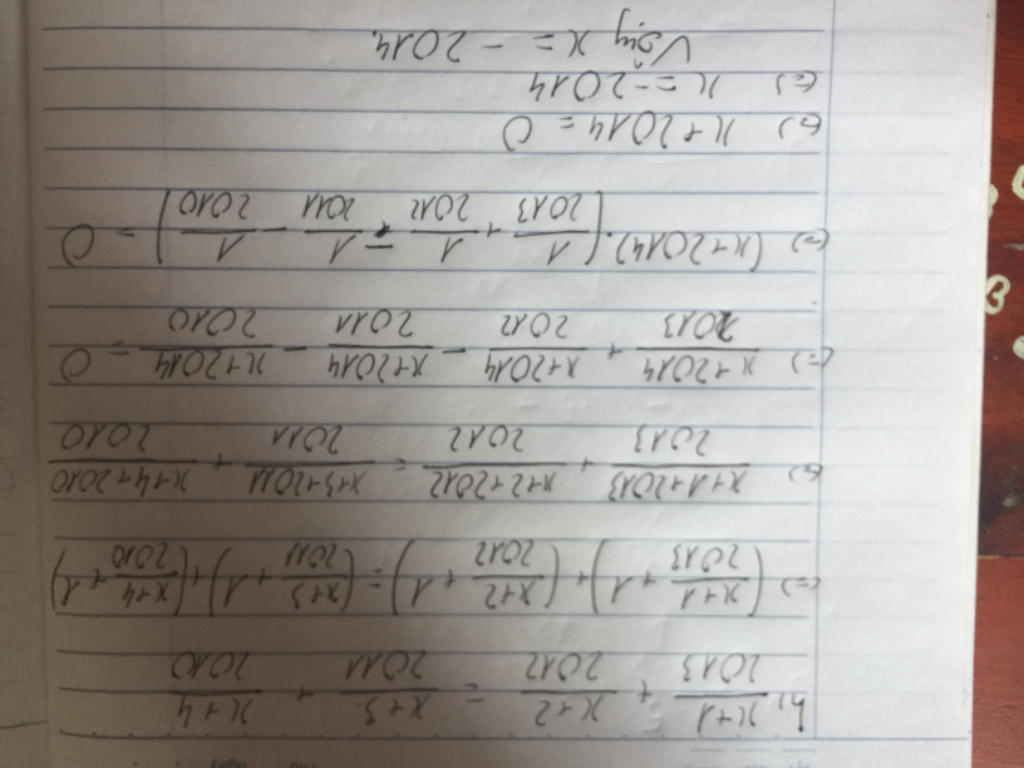 h, x+1/2013 + x+2/2012 = x+3/2011 + x+4/2010
(=) (x+1/2013 + 1) + (x+2/2012 + 1) = (x+3/2011 + 1) + (x+4/2010 + 1)
(=) x+1+2013/2013 + x+2+2012/2012 = x+3+2011/2011 + x+4+2010/2010
(=) x+2014/2013 + x+2014/2012 - x+2014/2011 - x+2014/2010 = 0
(=) (x+2014).(1/2013 + 1/2012 - 1/2011 - 1/2010) = 0
(=) x+2014 = 0
(=) x = -2014
Vậy x = -2014.